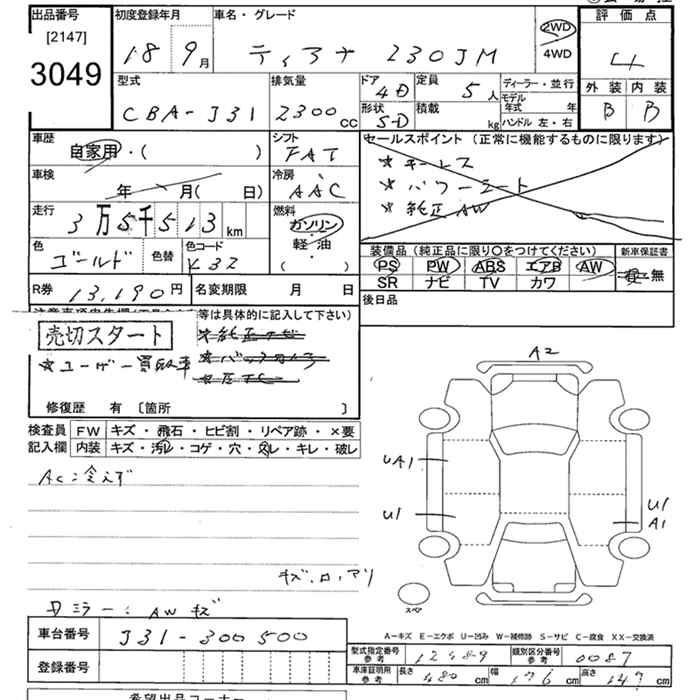 出品番号
[2147]
3049
初度登録年月
18 9月
車名・グレード
ティアナ 230JM
2WD
4WD
評価点
4
外装 内装
B B
型式
CBA-J31
排気量
2300cc
ドア
4D
形状
S-D
定員
5人
積載
kg
ディーラー・並行
モデル年式 年
ハンドル 左・右
車歴
自家用・( )
シフト
FAT
車検
年 月( 日)
冷房
AAC
走行
3万5千513km
燃料
ガソリン
軽・油
( )
色
ゴールド
色替
色コード
K32
R券
13,190円
名変期限 月 日
セールスポイント(正常に機能するものに限ります)
★ キーレス
★ パワーシート
★ 純正AW
装備品(純正品に限り○をつけてください)
PS PW ABS エアB AW
SR ナビ TV カワ
新車保証書
有・無
後日品
等は具体的に記入して下さい)
売切スタート
★ユーザー買取車
★純正ナビ
修復歴 有 〔箇所 〕
検査員記入欄
FW キズ・飛石・ヒビ割・リペア跡・×要
内装 キズ・汚レ・コゲ・穴・スレ・キレ・破レ
AC:冷えず
キズ.凹.アリ
ミラー:AWキズ
A2
UA1
U1
U1
A1
スペア
A-キズ E-エクボ U-凹み W-補修跡 S-サビ C-腐食 XX-交換済
車台番号
J31-300500
登録番号
型式指定番号
参考
12489
類別区分番号
参考
0087
車庫証明用
参考
長さ 480cm
幅 176cm
高さ 147cm
希望出品コーナー